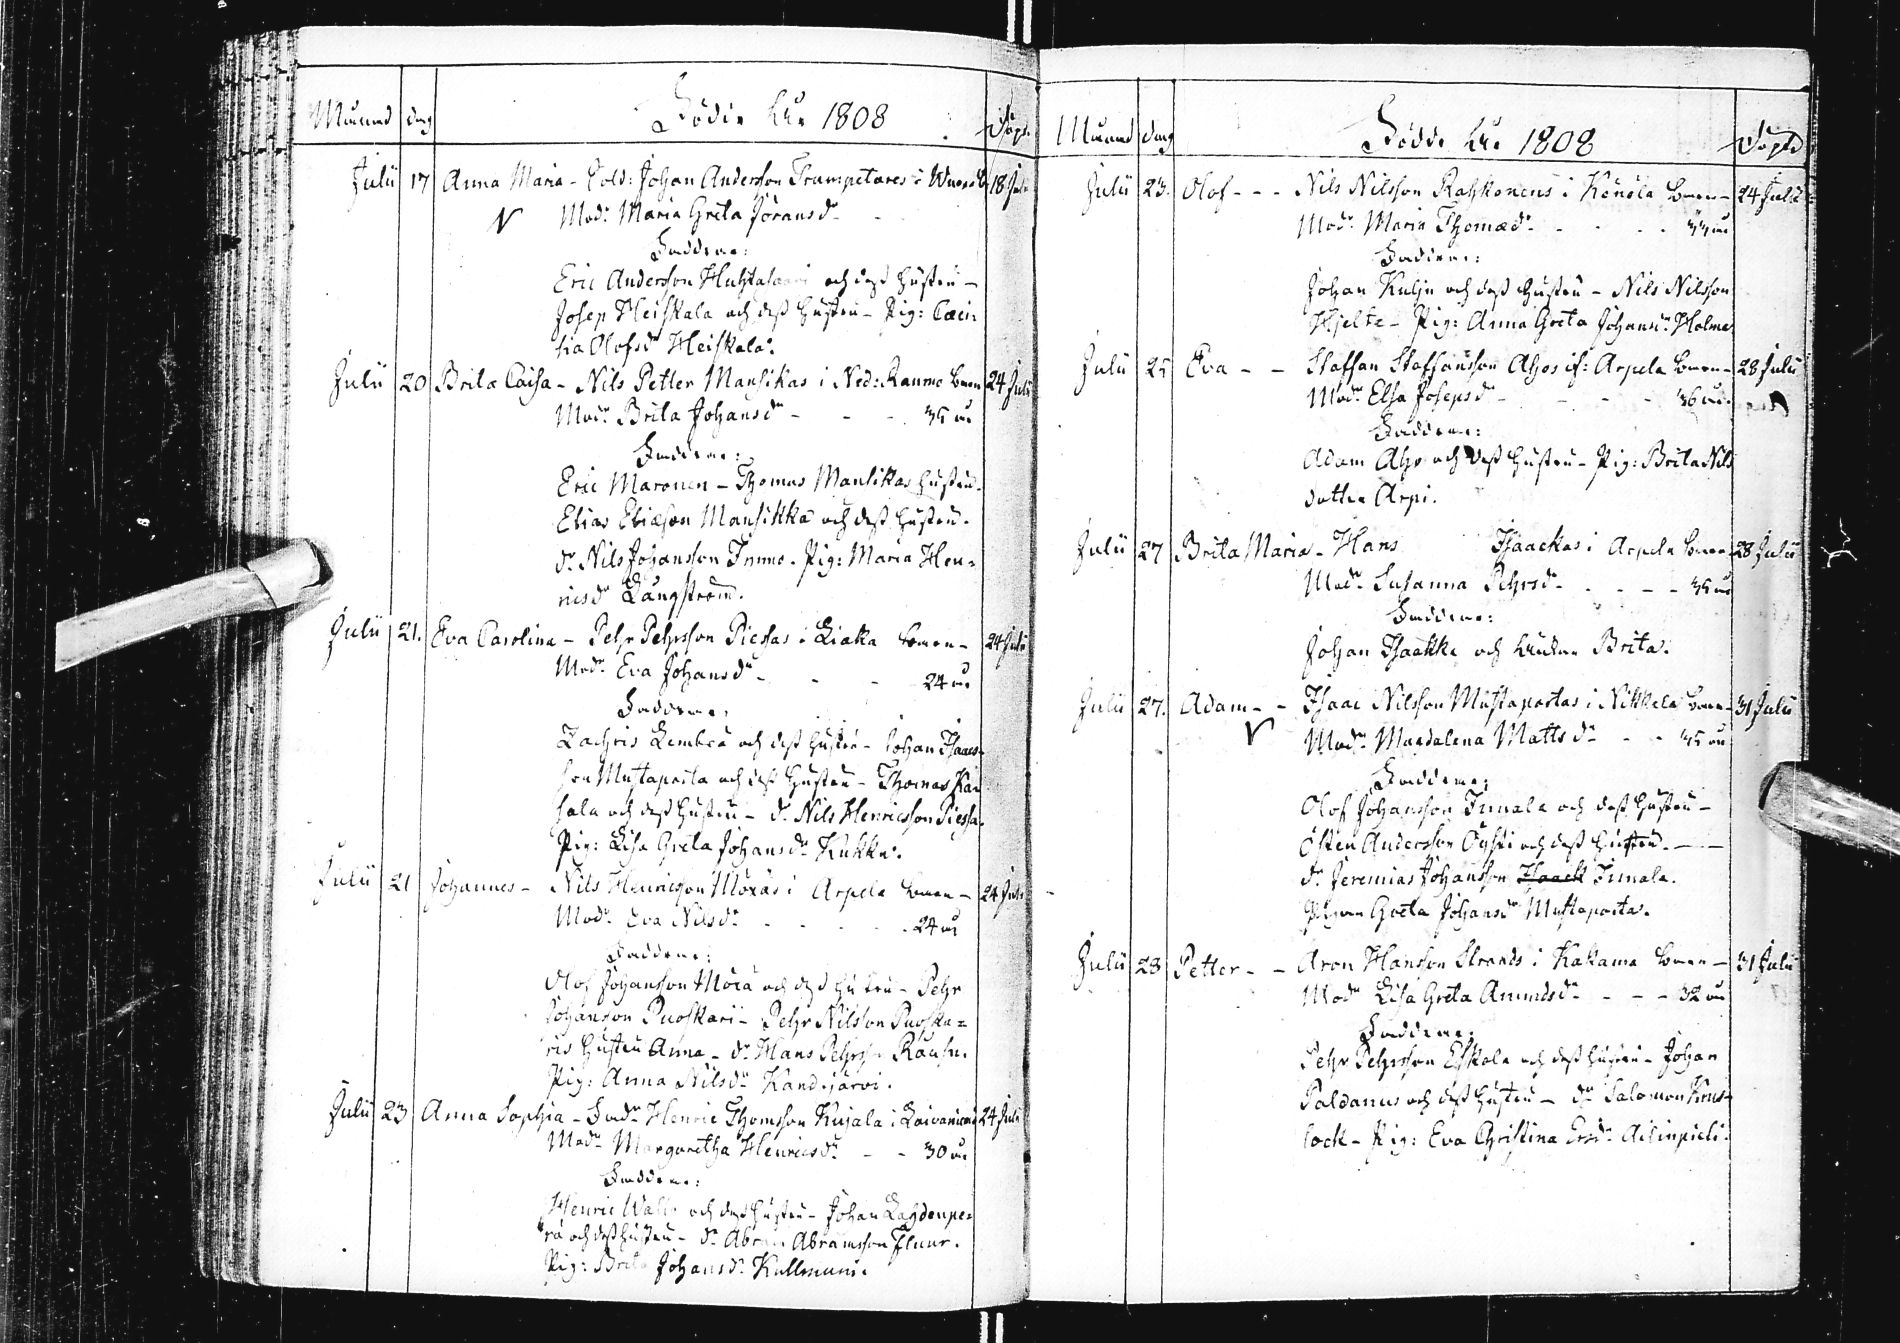 Månad dag Födde År 1808 Döpt.
Julii 17 Anna Maria - Sold: Johan Andersson Trumpetares i 18 Julii
Mod:r Maria Greta Jöransd:r
Faddrar:
Eric Andersson Huhtasaari och dess hustru -
Josep Heiskala och dess hustru - Pig: Cæci-
lia Olofsd:r Heiskala.
Julii 20 Brita Caisa - Nils Petter Mansikas i Ned: Raumo barn 24 Julii
Mod:r Brita Johansd:r - - - 35 år
Faddrar:
Eric Maronen - Thomas Mansikas hustru.
Elias Eliæson Mansikka och dess hustru.
d:r Nils Johansson Immo. Pig: Maria Hen-
ricsd:r Långström.
Julii 21. Eva Carolina - Pehr Pehrsson Piessas i Liakka barn - 24 Julii
Mod:r Eva Johansd:r - - - 24 år
Faddrar:
Zachris Lembea och dess hustru - Johan Isaacs-
son Mustaparta och dess hustru - Thomas
och dess hustru - d:r Nils Henricsson Piessa.
Pig: Lisa Greta Johansd:r Kukka.
Julii 21 Johannes - Nils Henricson Möräs i Arpela barn - 24 Julii
Mod:r Eva Nilsd:r - - - 24 år
Faddrar:
Olof Johansson Mörä och dess hustru - Pehr
Johansson Puoskari - Pehr Nilsson Puoska-
ris hustru Anna - d:r Hans Pehrss:n
Pig: Anna Nilsd:r Kandejärvi.
Julii 23 Anna Sophia - Henric Thomsson Kujala i 24 Julii
Mod:r Margaretha Henricsd:r - - 30 år
Faddrar:
Henric och dess hustru - Johan Lahdenpe-
rä och dess hustru - d:r Abram Abramsson
Pig: Brita Johansd:r
Månad dag Födde År 1808 Döpte
Julii 23. Olof - - - Nils Nilsson Rahkonens i Könölä barn - 24 Julii
Mod:r Maria Thomæd:r - - - 44 år
Faddrar:
Johan Kulju och dess hustru - Nils Nilsson
Hjelte - Pig: Anna Greta Johansd:r Holma
Julii 25 Eva - - Staffan Staffansson Ahos if: Arpela barn - 28 Julii
Mod:r Elsa Josepsd:r - - - 36 år
Faddrar:
Adam Aho och dess hustru - Pig: Brita Nils
dotter Arpi.
Julii 27 Brita Maria - Hans Isaackas i Arpela barn 28 Julii
Mod:r Susanna Pehrsd:r - - - 35 år
Faddrar:
Johan Isaakka och Brita.
Julii 27. Adam - - Isaac Nilsson Mustapartas i Nikkala barn - 31 Julii
Mod:r Magdalena Mattsd:r - - 35 år
Faddrar:
Olof Johansson Immala och dess hustru -
Östen Andersson och dess hustru. -
d:r Jeremias Johansson Isaack Immala.
Pigan Greta Johansd:r Mustaparta.
Julii 28 Petter - - Aron Hansson Strands i Kakama barn - 31 Julii
Mod:r Lisa Greta Amundsd:r - - - 32 år
Faddrar:
Pehr Pehrsson Eskola och dess hustru - Johan
Paldanus och dess hustru - d:r Salomon
Pig: Eva Christina Ersd:r